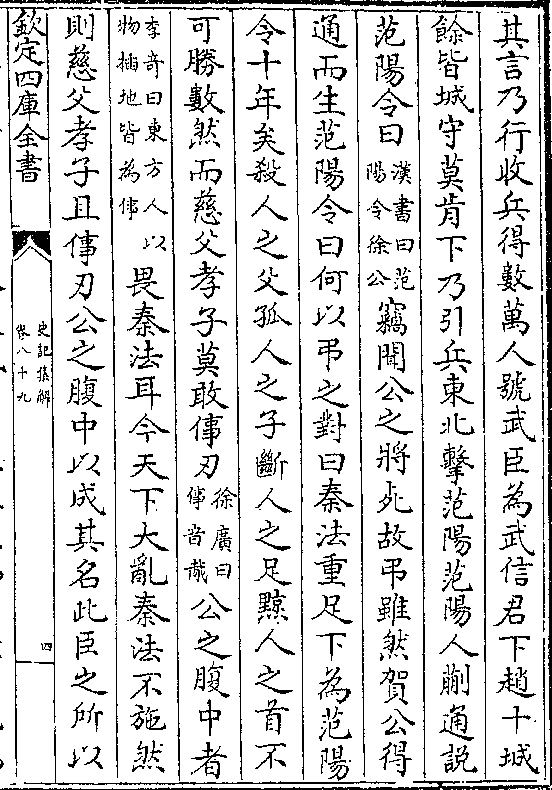 其言乃行收兵得數萬人號武臣為武信君下趙十城
餘皆城守莫肯下乃引兵東北擊范陽范陽人蒯通説
范陽令曰漢書曰范陽令徐公竊聞公之將死故弔雖然賀公得
通而生范陽令曰何以弔之對曰秦法重足下為范陽
令十年矣殺人之父孤人之子斷人之足黥人之首不
可勝數然而慈父孝子莫敢倳刃徐廣曰倳音胾公之腹中者
李竒曰東方人以物插地皆為倳畏秦法耳今天下大亂秦法不施然
則慈父孝子且倳刃公之腹中以成其名此臣之所以
欽定四庫全書
史記集解
卷八十九
四